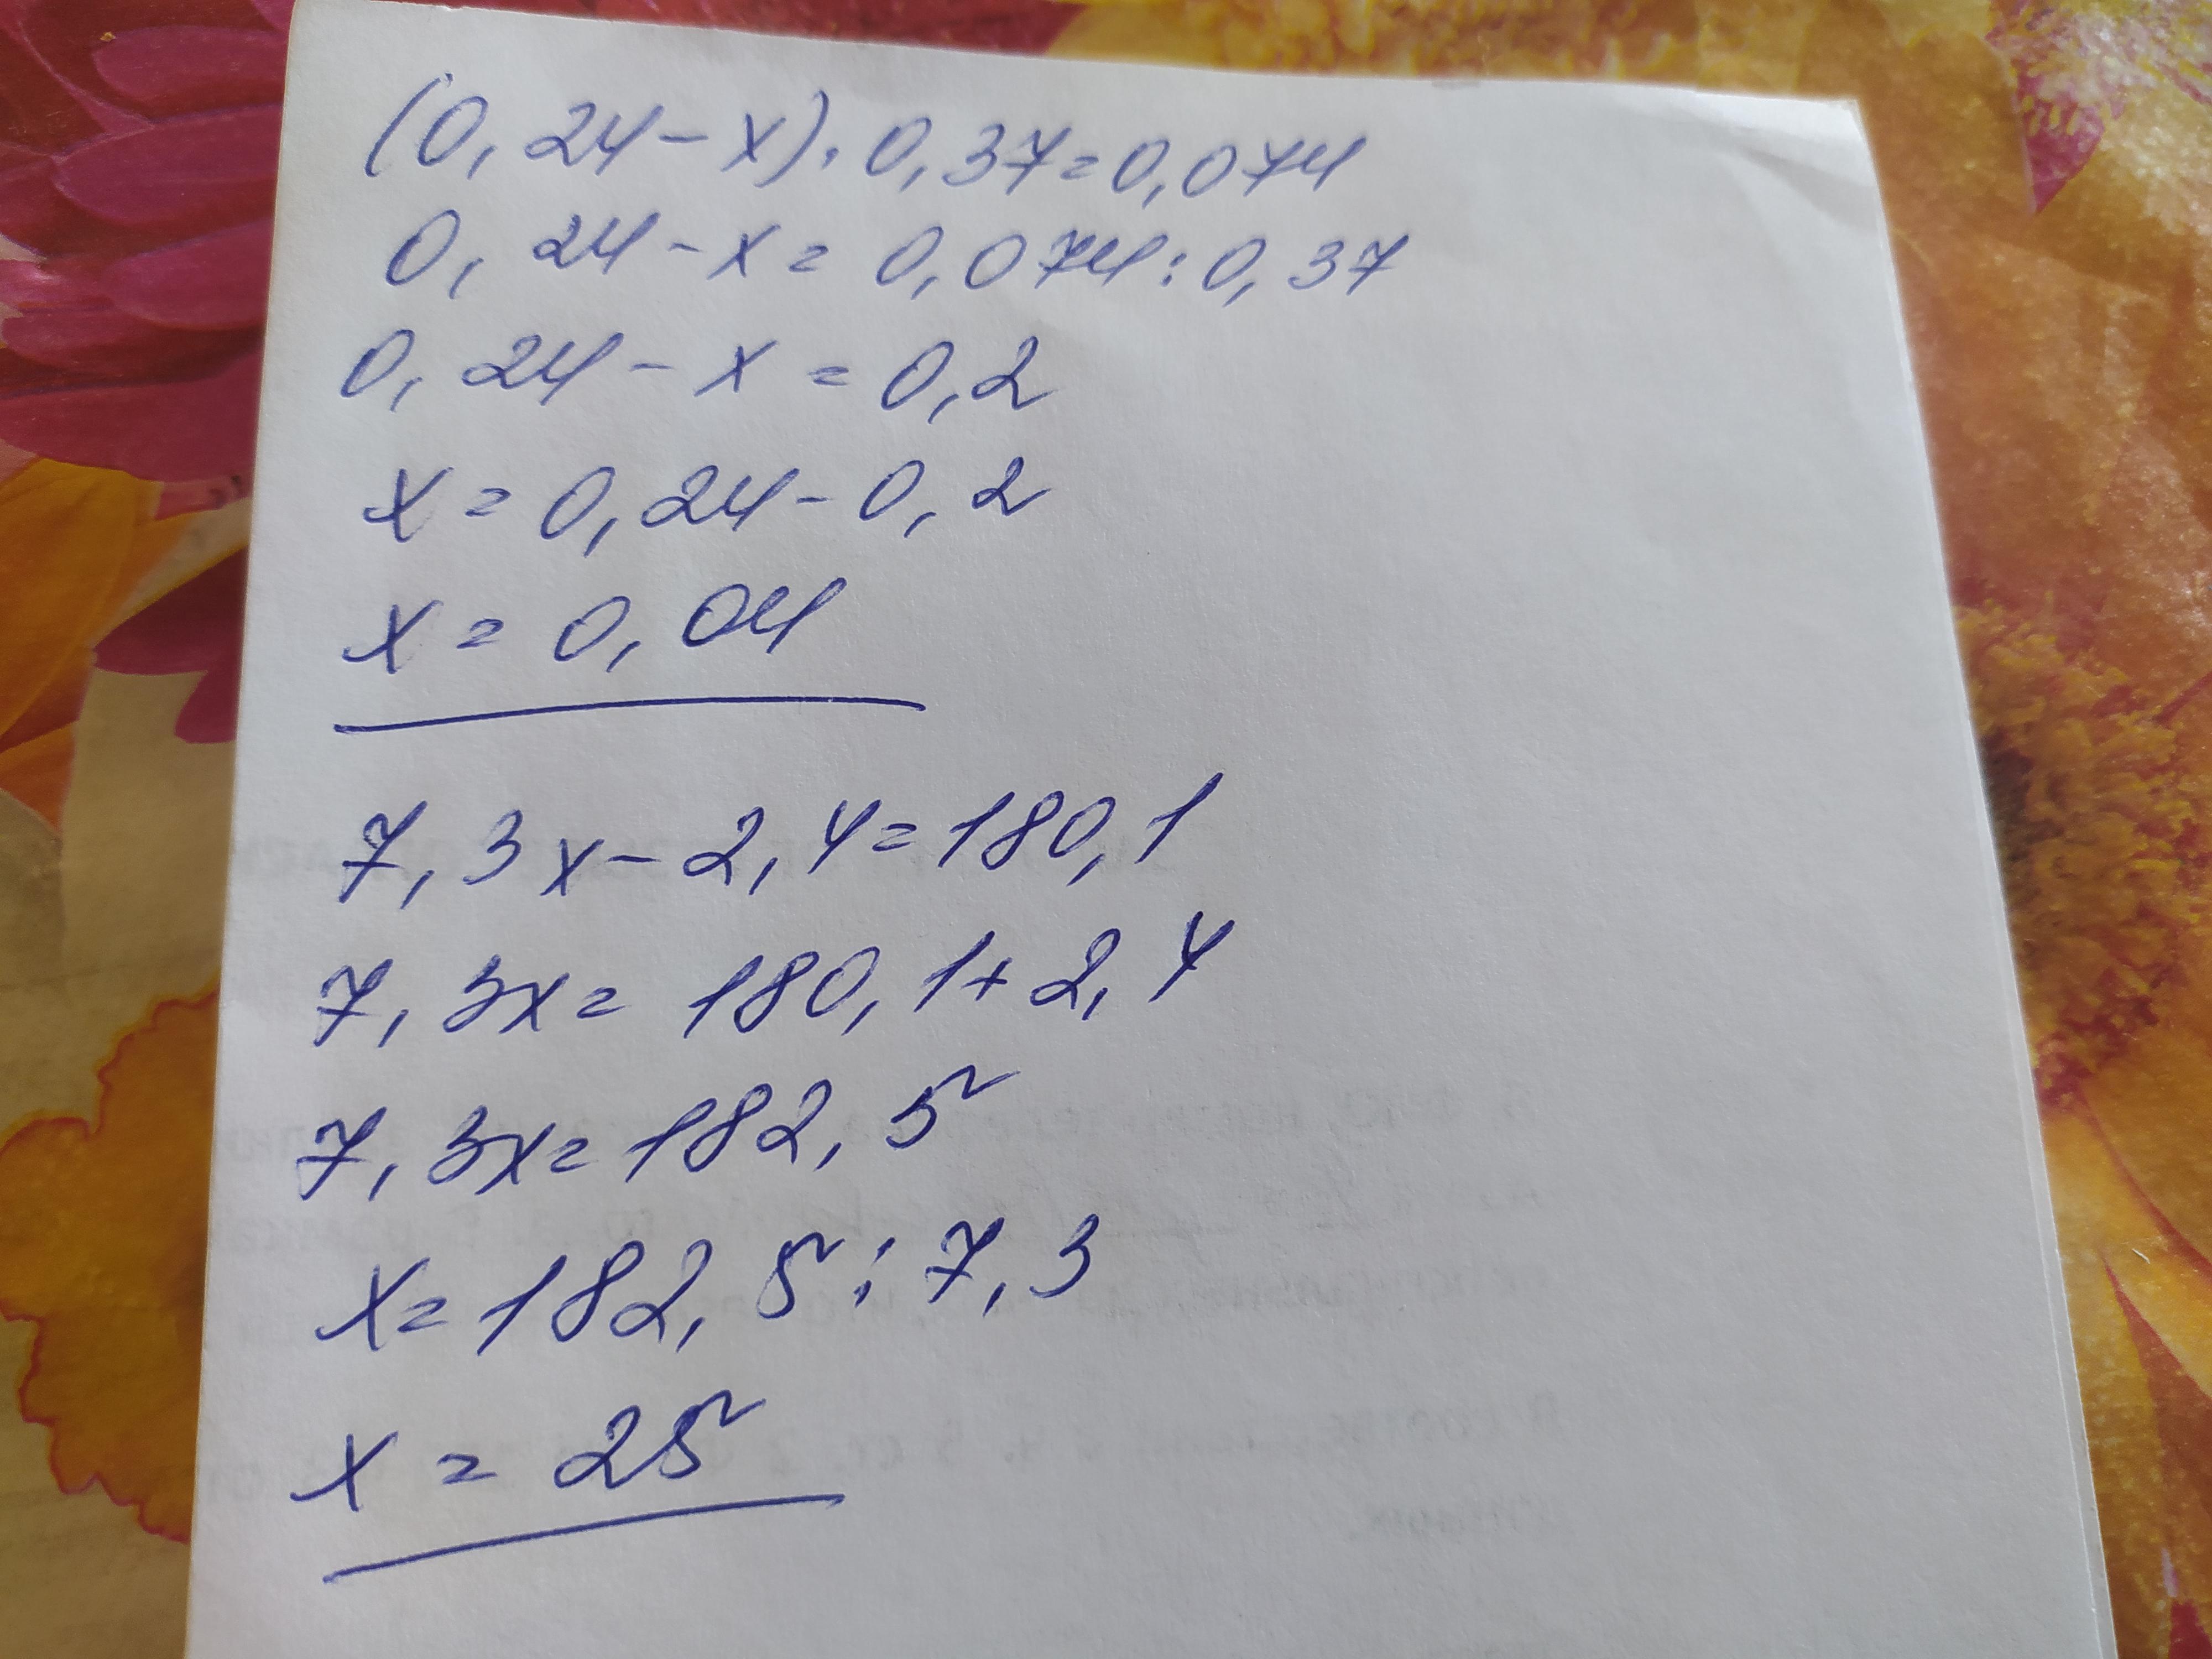 (0,24-x)·0,37=0,074
0,24-x=0,074:0,37
0,24-x=0,2
x=0,24-0,2
x=0,04
7,3x-2,4=180,1
7,3x=180,1+2,4
7,3x=182,5
x=182,5:7,3
x=25